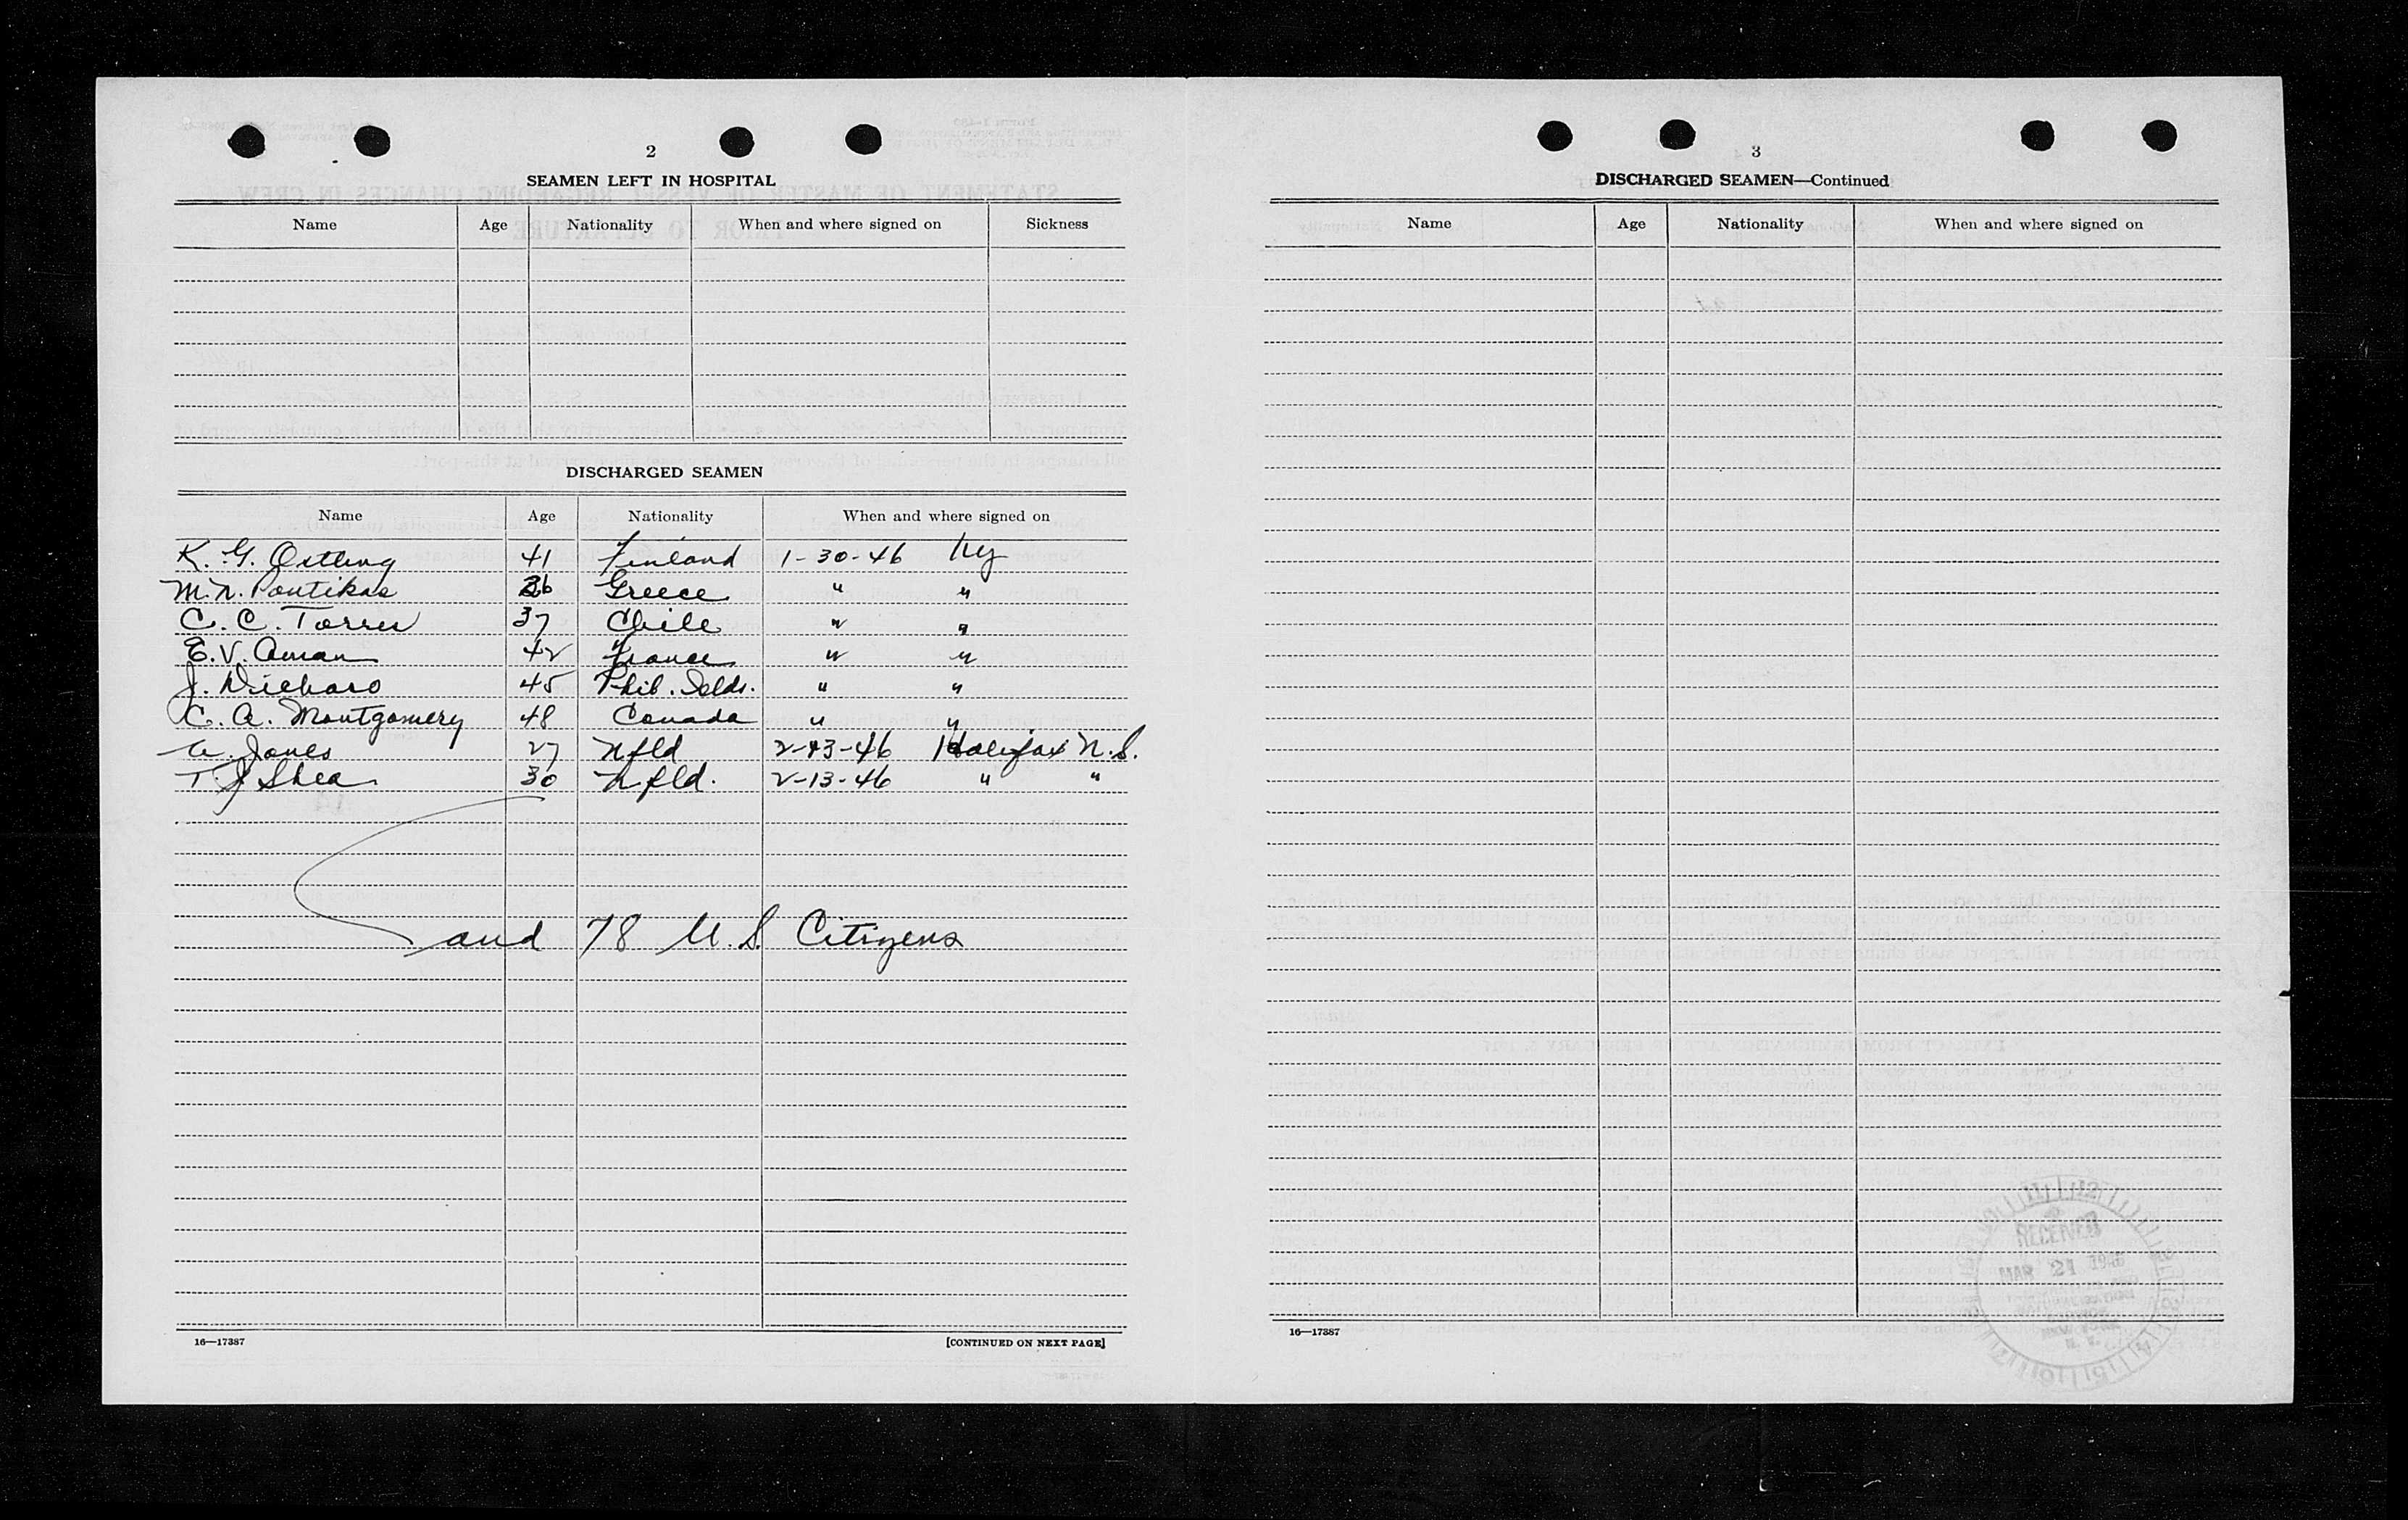 2
SEAMEN LEFT IN HOSPITAL
Name Age Nationality When and where signed on Sickness
DISCHARGED SEAMEN
Name Age Nationality When and where signed on
K. G. 41 Finland 1-30-46 NY
M. N. Pontikas 36 Greece " "
C. C. Torres 37 Chile " "
E. V. Aman 42 France " "
J. 45 Phil. Islds. " "
C. A. Montgomery 48 Canada " "
Jones 27 Nfld 2-13-46 Halifax N.S.
T J Shea 30 Nfld. 2-13-46 " "
and 78 U.S. Citizens
16—17387 [CONTINUED ON NEXT PAGE]
3
DISCHARGED SEAMEN—Continued
Name Age Nationality When and where signed on
11 12
RECEIVED
MAR 21 1946
16—17387